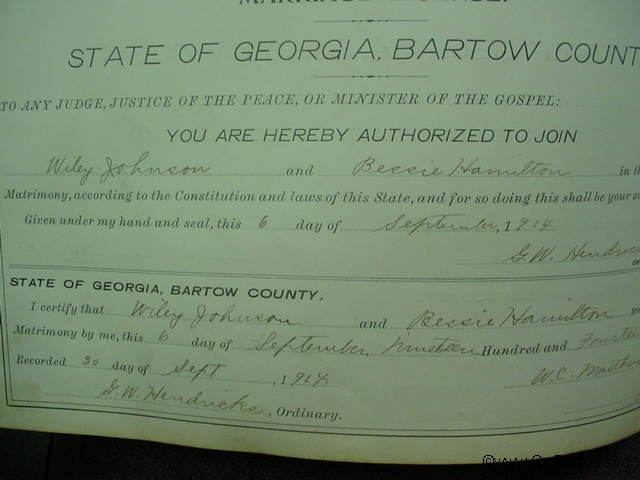 MARRIAGE LICENSE.
STATE OF GEORGIA, BARTOW COUNT
TO ANY JUDGE, JUSTICE OF THE PEACE, OR MINISTER OF THE GOSPEL:
YOU ARE HEREBY AUTHORIZED TO JOIN
Wiley Johnson and Bessie Hamilton in th
Matrimony, according to the Constitution and laws of this State, and for so doing this shall be your
Given under my hand and seal, this 6 day of September, 1914
G.W. Hendric
STATE OF GEORGIA, BARTOW COUNTY.
I certify that Wiley Johnson and Bessie Hamilton
Matrimony by me, this 6 day of September, Nineteen Hundred and Fourtee
Recorded 30 day of Sept, 1914
W.C. Matth
G.W. Hendricks, Ordinary.